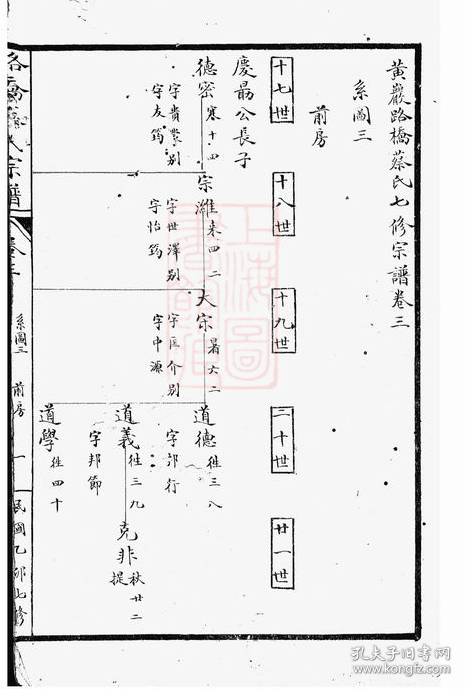 黃巖路橋蔡氏七修宗譜卷三
系圖三
前房
十七世
十八世
十九世
二十世
廿一世
慶勗公長子
德密 寒十四
字貴叢別
字友筠
宗濰 来四二
字世澤別
字怡筠
大宗 暑六二
字匡介別
字中源
道德 往三八
字郭行
道義 往三九
字邦節
克非 秋廿二
提
道學 往四十
路橋蔡氏宗譜
卷三
系圖三
前房
一
民國乙卯七修
上海圖書館藏
孔夫子旧书网
kongfz.com